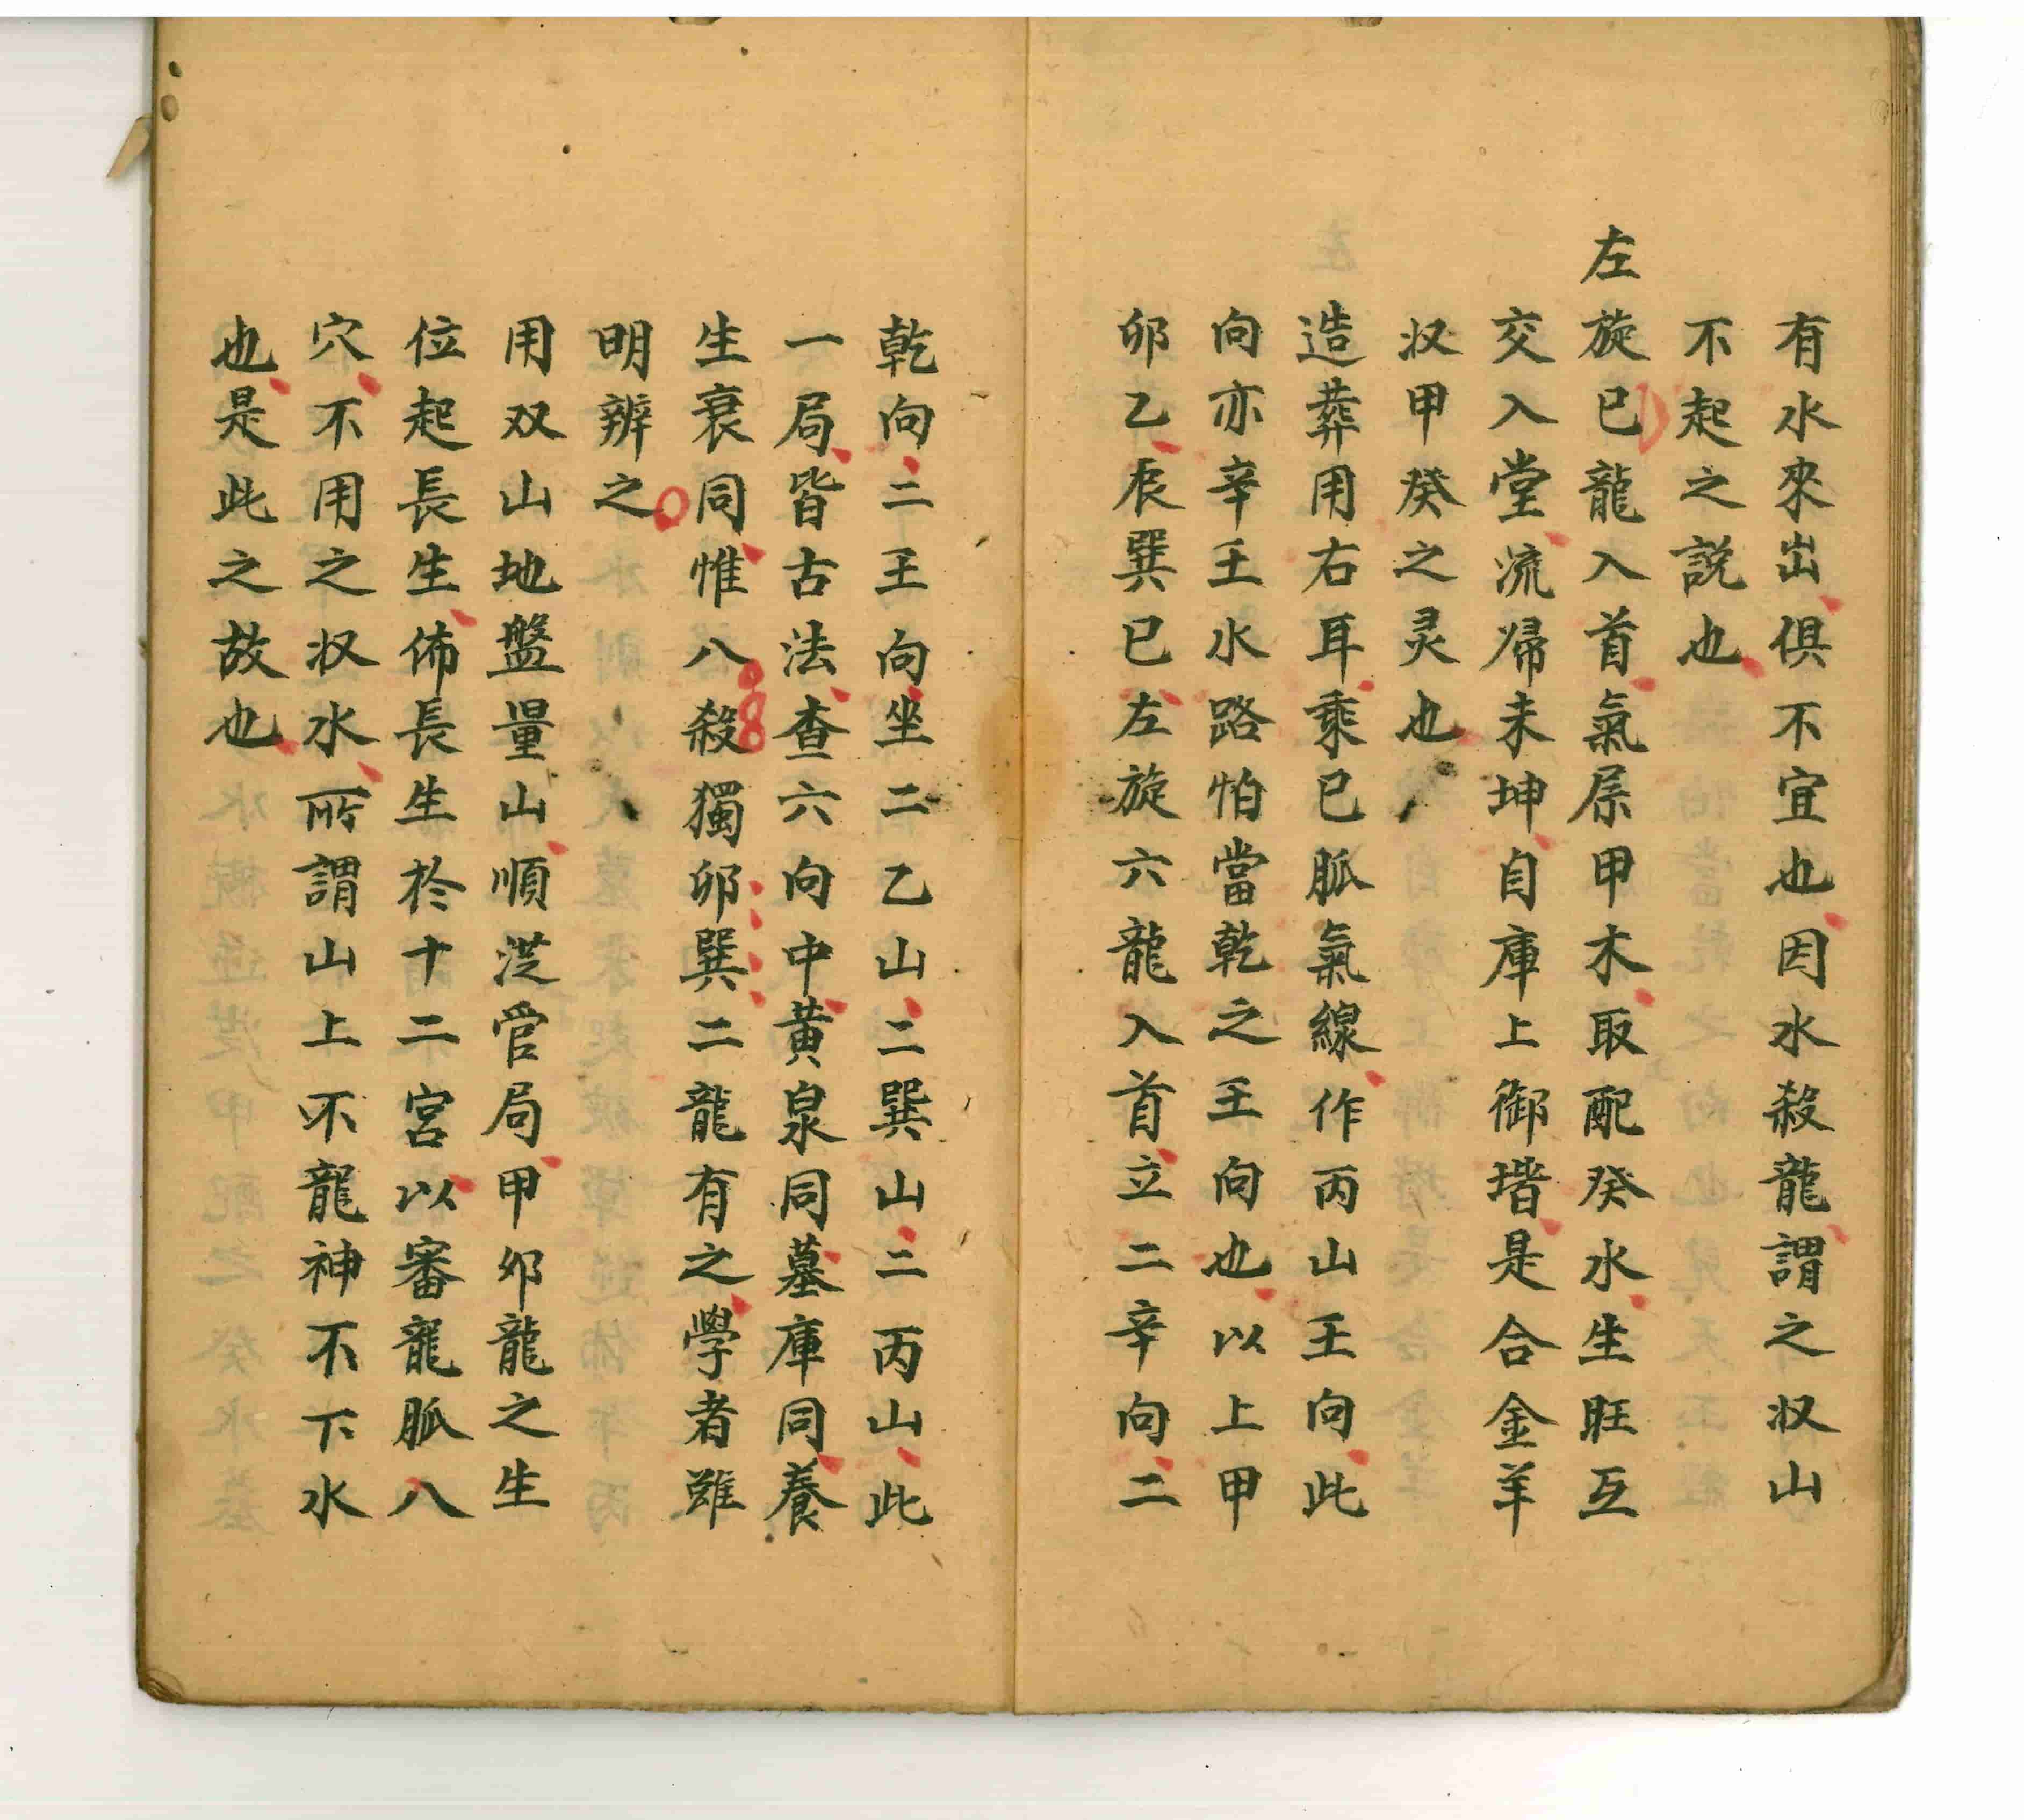 有水來出俱不宜也因水殺龍謂之収山
不起之説也
左旋巳龍入首氣屬甲木取配癸水生旺互
交入堂流帰未坤自庫上御堦是合金羊
収甲癸之灵也
造葬用右耳乘巳脈氣線作丙山壬向此
向亦辛壬水路怕當乾之壬向也以上甲
卯乙辰巽巳左旋六龍入首立二辛向二
乾向二壬向坐二乙山二巽山二丙山此
一局皆古法查六向中黄泉同墓庫同養
生衰同惟八殺獨卯巽二龍有之學者雖
明辨之
用双山地盤量山順逆官局甲卯龍之生
位起長生佈長生於十二宮以審龍脈八
穴不用之収水所謂山上不龍神不下水
也是此之故也